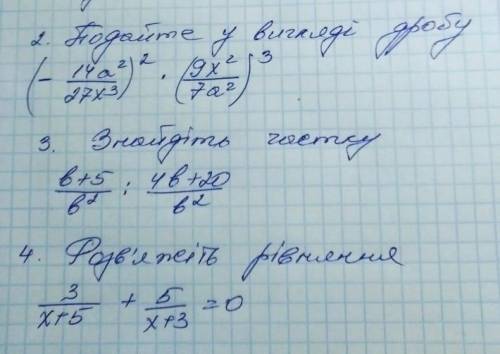 2. Подайте у вигляді дробу
(- 14a²/27x³)² · (9x²/7a²)³
3. Знайдіть частку
b+5/b² : 4b+20/b²
4. Розв'яжіть рівняння
3/x+5 + 5/x+3 = 0